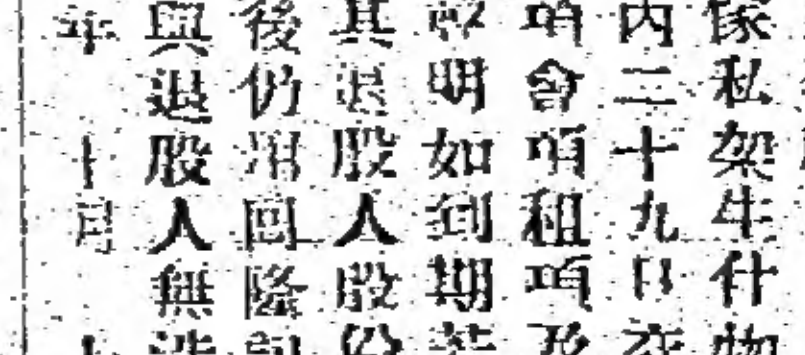 傢私架生什物
內二十九日交
項會項租項及
明如到期
其退股人股份
後仍用回隆記
與退股人無涉
年 十月